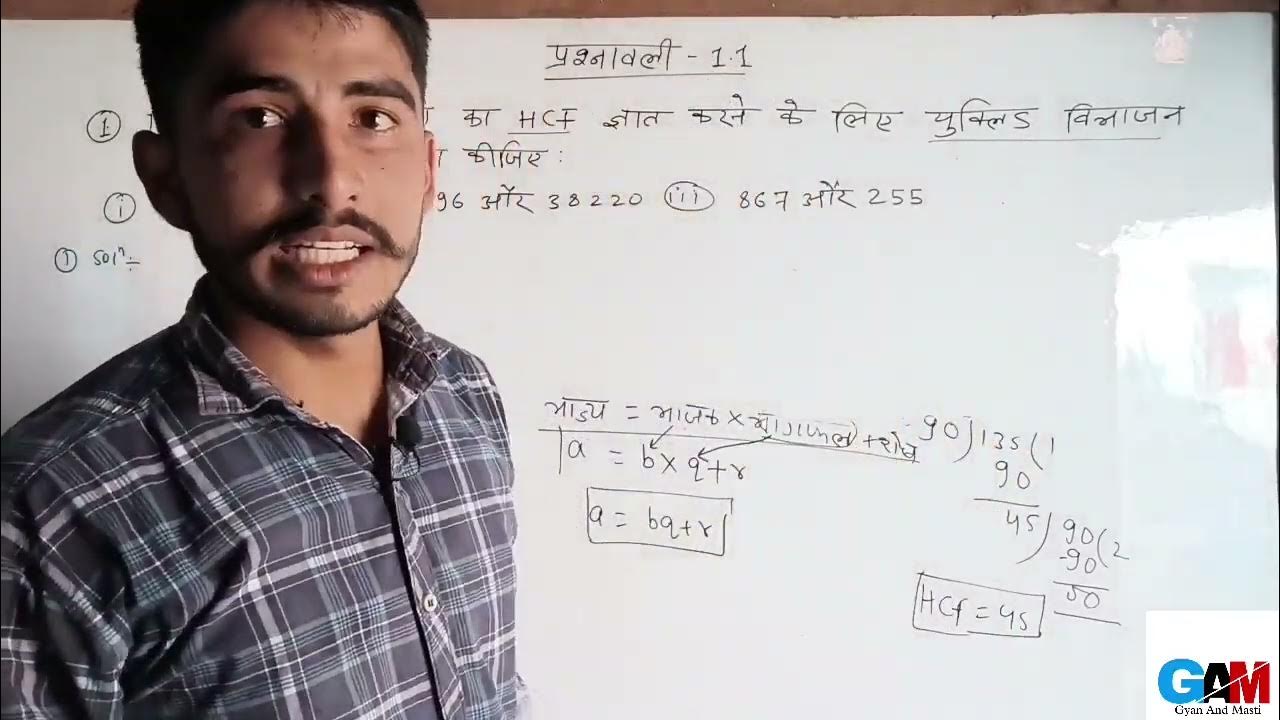 प्रश्नावली - 1.1
① का HCF ज्ञात करने के लिए युक्लिड विभाजन
कीजिए :
ⓘ 96 और 38220 (iii) 867 और 255
① Solⁿ÷
भाज्य = भाजक × भागफल + शेष
a = b × q + r
a = bq + r
90)135(1
90
45)90(2
-90
HCF = 45
GAM
Gyan And Masti